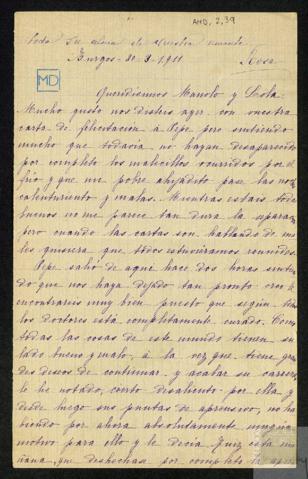 AMD, 2,39
toda su alma de vuestra amante
Rosa
Burgos-30-3-1911
MD
Queridísimos Manolo y Lola.
Mucho gusto nos disteis ayer con vuestra
carta de felicitación á Pepe pero sintiendo
mucho que todavia no hayan desaparecido
por completo los malecillos ocurridos por el
frío y que mi pobre ahijadito pase las noches
calenturiento y malas. Mientras estais todos
buenos no me parece tan dura la separa
pero cuando las cartas son hablando de ma
les quisiera que todos estuvieramos reunidos.
Pepe salió de aqui hace dos horas sintien
do que nos haya dejado tan pronto creo le
encontrareis muy bien puesto que según todos
los doctores está completamente curado. Como
todas las cosas de este mundo tienen su
lado bueno y malo, á la vez que tiene gran
des deseos de continuar y acabar su carrera
le he notado, cierto desaliento por ella y
desde luego sus puntas de aprensivo, no ha
biendo por ahora absolutamente ningún
motivo para ello y le decía Luis esta ma
ñana, que deshechase por completo la